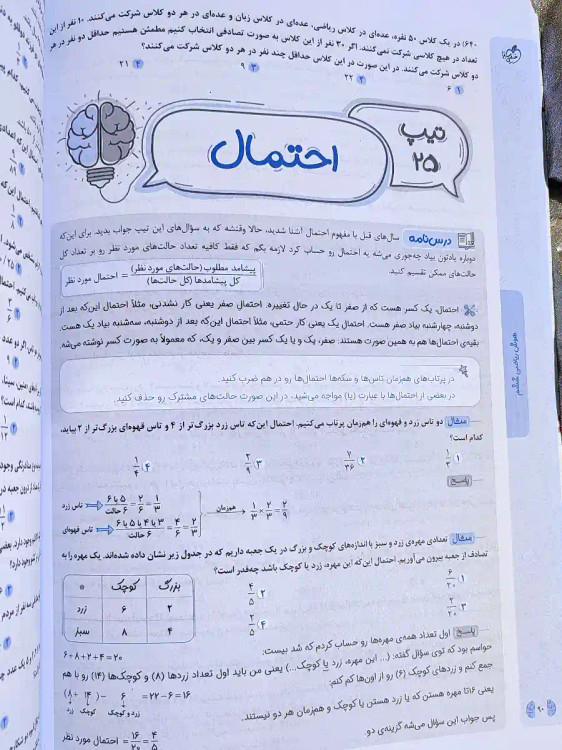 ۶۴۰) در یک کلاس ۵۰ نفره، عده‌ای در کلاس ریاضی، عده‌ای در کلاس زبان و عده‌ای در هر دو کلاس شرکت می‌کنند. ۱۰ نفر از این
تعداد در هیچ کلاسی شرکت نمی‌کنند. اگر ۳۰ نفر از این کلاس به صورت تصادفی انتخاب کنیم مطمئن هستیم حداقل دو نفر در هر
دو کلاس شرکت می‌کنند. در این صورت در این کلاس حداقل چند نفر در هر دو کلاس شرکت می‌کنند؟
۱) ۶ ۲) ۲۲ ۳) ۹ ۴) ۲۱
تیپ
۲۵
احتمال
درس‌نامه سال‌های قبل با مفهوم احتمال آشنا شدید، حالا وقتشه که به سؤال‌های این تیپ جواب بدید. برای این‌که
دوباره یادتون بیاد چه‌جوری می‌شه یه احتمال رو حساب کرد لازمه بگم که فقط کافیه تعداد حالت‌های مورد نظر رو بر تعداد کل
حالت‌های ممکن تقسیم کنید.
پیشامد مطلوب (حالت‌های مورد نظر) / کل پیشامدها (کل حالت‌ها) = احتمال مورد نظر
احتمال، یک کسر هست که از صفر تا یک در حال تغییره. احتمال صفر یعنی کار نشدنی، مثلاً احتمال این‌که بعد از
دوشنبه، چهارشنبه بیاد صفر هست. احتمال یک یعنی کار حتمی، مثلاً احتمال این‌که بعد از دوشنبه، سه‌شنبه بیاد یک هست.
بقیه‌ی احتمال‌ها هم به همین صورت هستند: صفر، یک و یا یک کسر بین صفر و یک، که معمولاً به صورت کسر نوشته می‌شه.
در پرتاب‌های همزمان تاس‌ها و سکه‌ها احتمال‌ها رو در هم ضرب کنید.
در بعضی از احتمال‌ها با عبارت (یا) مواجه می‌شید، در این صورت حالت‌های مشترک رو حذف کنید.
مثال دو تاس زرد و قهوه‌ای را هم‌زمان پرتاب می‌کنیم. احتمال این‌که تاس زرد بزرگ‌تر از ۴ و تاس قهوه‌ای بزرگ‌تر از ۲ بیاید،
کدام است؟
۱) ۱/۳ ۲) ۷/۳۶ ۳) ۲/۳ ۴) ۱/۴
پاسخ
تاس زرد ۵ یا ۶ / ۶ حالت = ۲/۶ = ۱/۳
تاس قهوه‌ای ۳ یا ۴ یا ۵ یا ۶ / ۶ حالت = ۴/۶ = ۲/۳
همزمان ۱/۳ × ۲/۳ = ۲/۹
مثال تعدادی مهره‌ی زرد و سبز با اندازه‌های کوچک و بزرگ در یک جعبه داریم که در جدول زیر نشان داده شده‌اند. یک مهره را به
تصادف از جعبه بیرون می‌آوریم. احتمال این‌که این مهره، زرد یا کوچک باشد چه‌قدر است؟
۱) ۶/۲۰ ۲) ۴/۵
۳) ۲/۲۰ ۴) ۲/۵
* کوچک بزرگ
زرد ۶ ۲
سبز ۸ ۴
پاسخ اول تعداد همه‌ی مهره‌ها رو حساب کردم که شد بیست:
۶+۸+۲+۴=۲۰
حواسم بود که توی سؤال گفته: (... این مهره، زرد یا کوچک...) یعنی من باید اول تعداد زردها (۸) و کوچک‌ها (۱۴) رو با هم
جمع کنم و زردهای کوچک (۶) رو از اون‌ها کم کنم:
(۸+۱۴)-۶=۲۲-۶=۱۶
زرد کوچک زرد و کوچک
یعنی ۱۶تا مهره هستن که یا زرد هستن یا کوچک و همزمان هر دو نیستند.
پس جواب این سؤال می‌شه گزینه‌ی دو.
احتمال مورد نظر = ۱۶/۲۰ = ۴/۵
هوش ریاضی ششم
۹۰